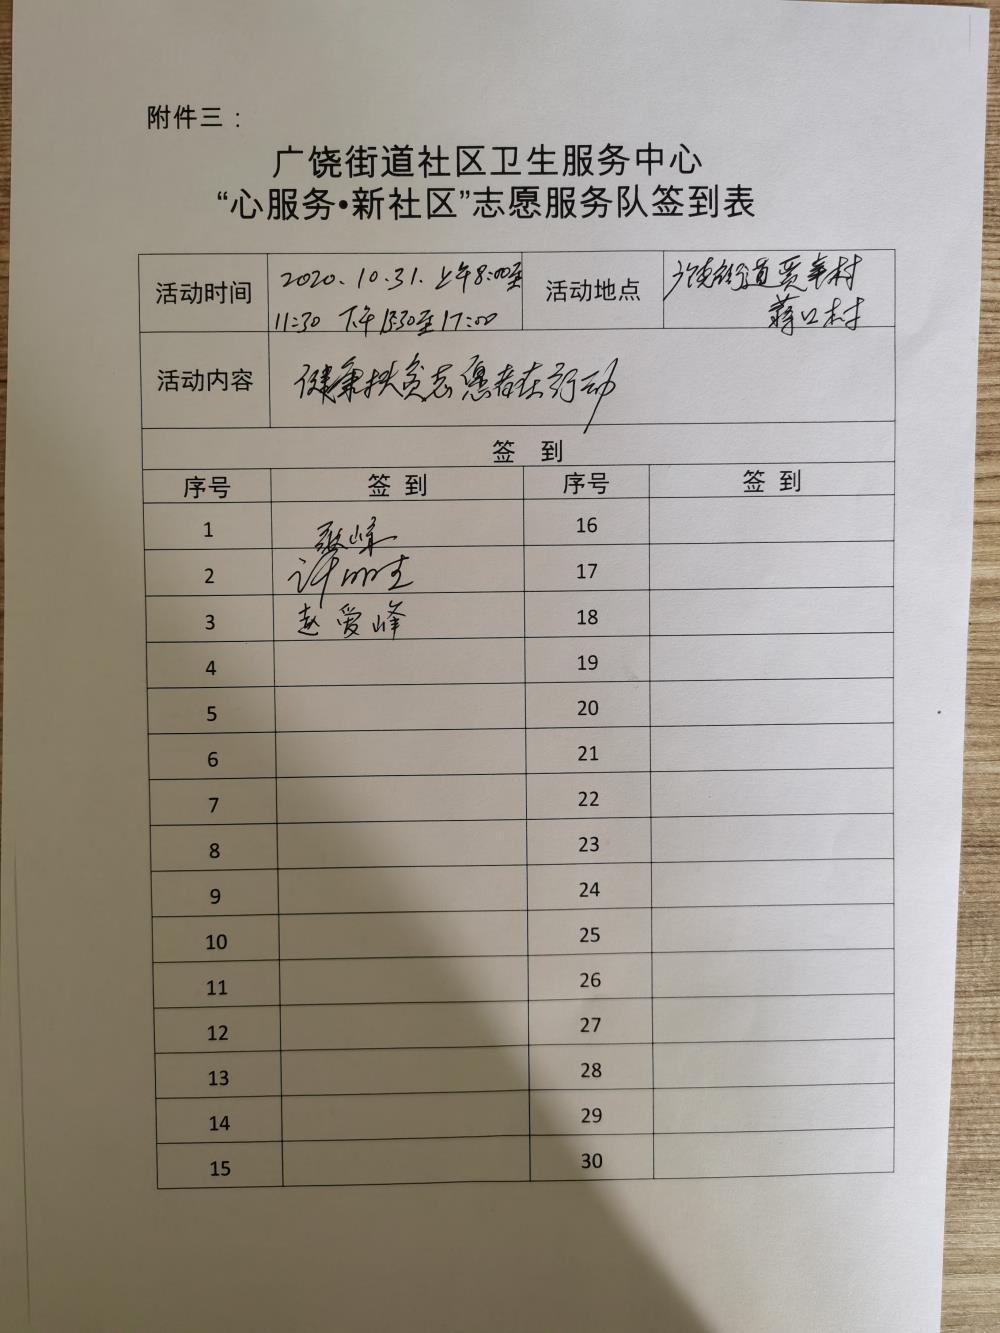 附件三：
广饶街道社区卫生服务中心
“心服务•新社区”志愿服务队签到表
活动时间 2020.10.31.上午8:00至 活动地点 广饶街道
11:30 下午 至17:00 村
活动内容 健康扶贫志愿者在行动
签 到
序号 签 到 序号 签 到
1 张峰 16
2 许 17
3 赵爱峰 18
4 19
5 20
6 21
7 22
8 23
9 24
10 25
11 26
12 27
13 28
14 29
15 30